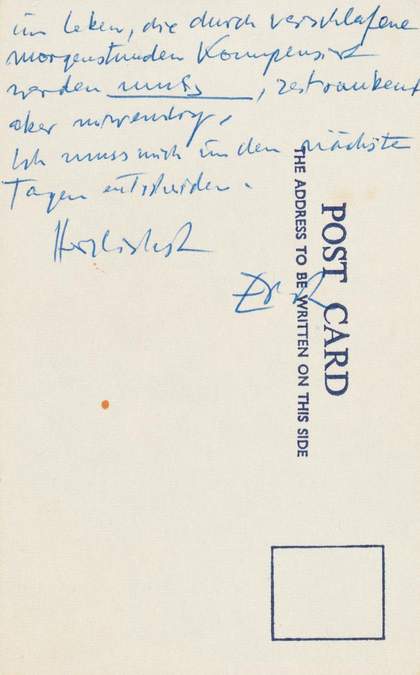 im Leben, die durch verschlafene
morgenstunden Kompensiert
werden muss, zeitraubend
aber notwendig.
Ich muss mich in den nächsten
Tagen entscheiden.
Herzlichst
POST CARD
THE ADDRESS TO BE WRITTEN ON THIS SIDE